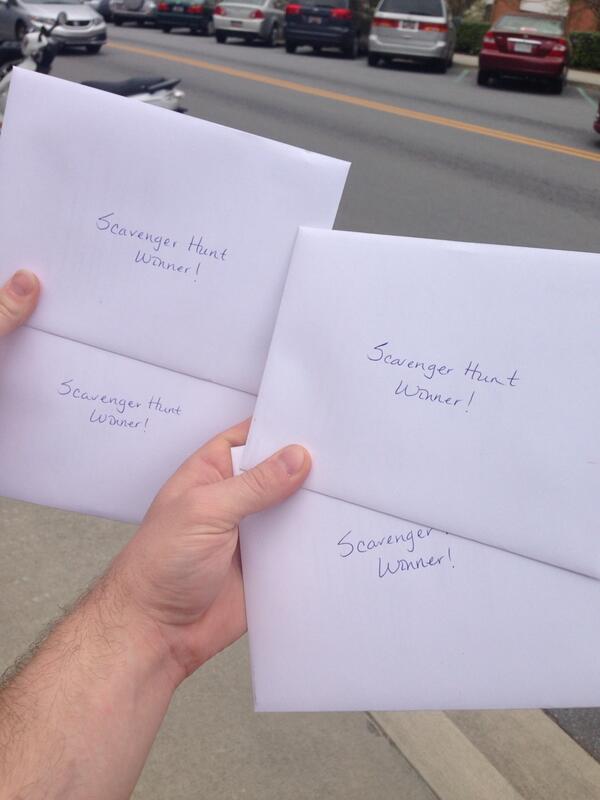 Scavenger Hunt
Winner!
Scavenger Hunt
Winner!
Scavenger Hunt
Winner!
Scavenger
Winner!